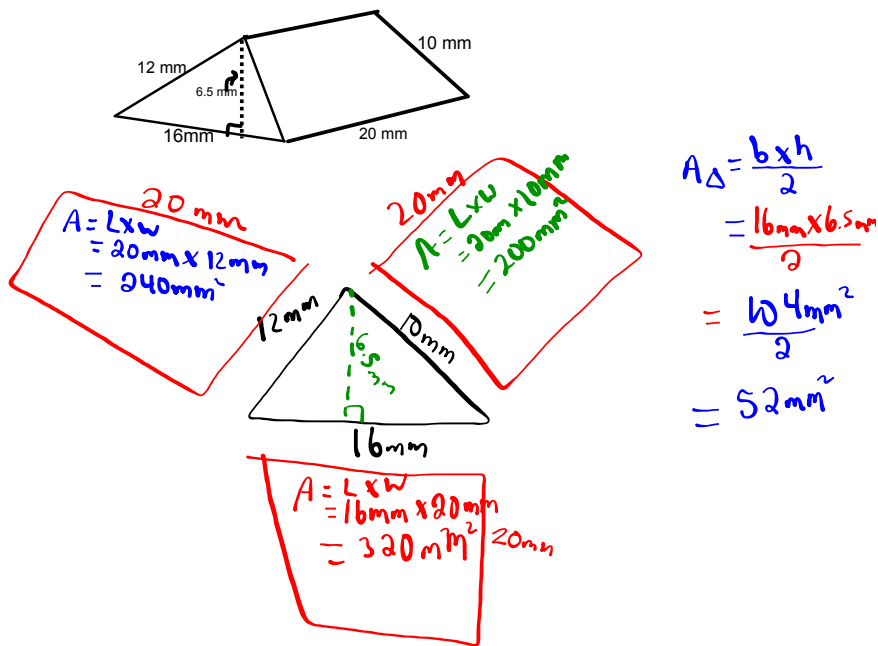 10 mm
12 mm
6.5 mm
16mm
20 mm
20 mm
A = L x W
= 20mm x 12mm
= 240mm²
20mm
A = L x W
= 20m x 10mm
= 200mm²
12mm
10mm
6.5mm
16mm
A = L x W
= 16mm x 20mm
= 320mm²
20mm
A△ = b x h
2
= 16mm x 6.5mm
2
= 104mm²
2
= 52mm²